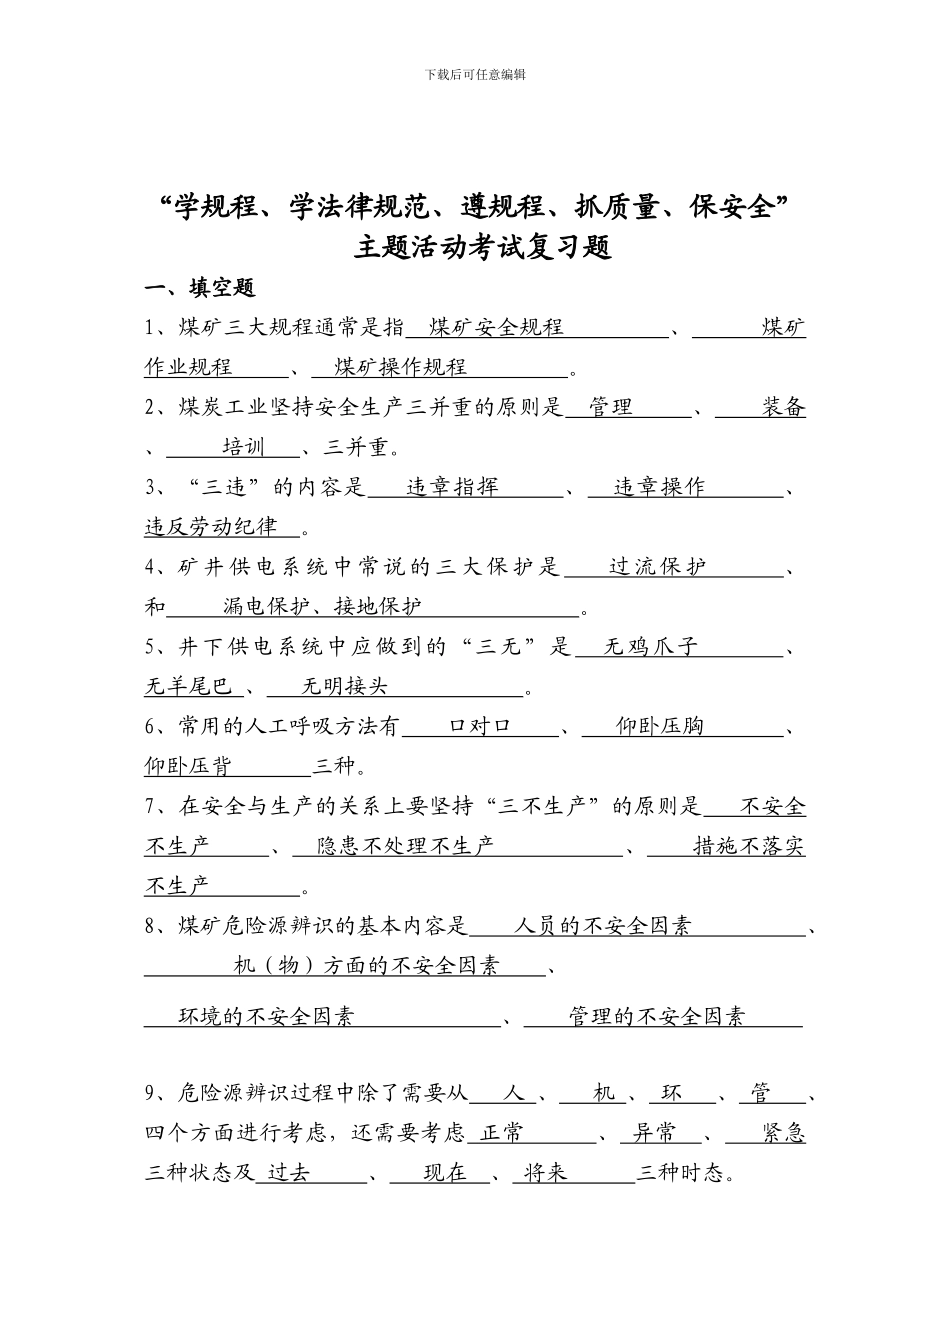 下载后可任意编辑
“学规程、学法律规范、遵规程、抓质量、保安全”
主题活动考试复习题
一、填空题
1、煤矿三大规程通常是指 煤矿安全规程 、 煤矿
作业规程 、 煤矿操作规程 。
2、煤炭工业坚持安全生产三并重的原则是 管理 、 装备
、 培训 、三并重。
3、“三违”的内容是 违章指挥 、 违章操作 、
违反劳动纪律 。
4、矿井供电系统中常说的三大保护是 过流保护 、
和 漏电保护、接地保护 。
5、井下供电系统中应做到的“三无”是 无鸡爪子 、
无羊尾巴 、 无明接头 。
6、常用的人工呼吸方法有 口对口 、 仰卧压胸 、
仰卧压背 三种。
7、在安全与生产的关系上要坚持“三不生产”的原则是 不安全
不生产 、 隐患不处理不生产 、 措施不落实
不生产 。
8、煤矿危险源辨识的基本内容是 人员的不安全因素 、
机（物）方面的不安全因素 、
环境的不安全因素 、 管理的不安全因素
9、危险源辨识过程中除了需要从 人 、 机 、 环 、 管 、
四个方面进行考虑，还需要考虑 正常 、 异常 、 紧急
三种状态及 过去 、 现在 、 将来 三种时态。